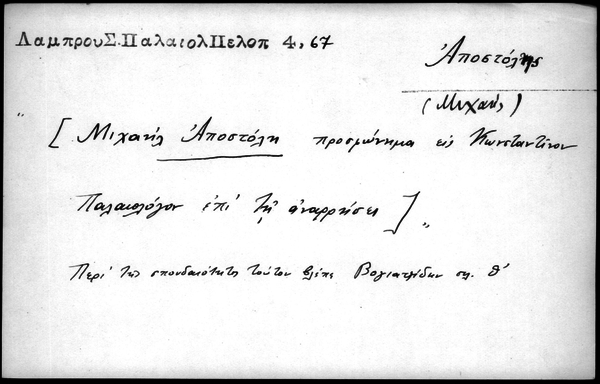 ΛαμπρουΣ.ΠαλαιολΠελοπ 4,67
Ἀποστόλης
(Μιχαήλ)
" [Μιχαήλ Ἀποστόλη προσφώνημα εἰς Κωνσταντῖνον
Παλαιολόγον ἐπὶ τῇ ἀναρρήσει] "
Περὶ τῆς σπουδαιότητος τούτου βλέπε Βογιατζίδην σελ. θ'